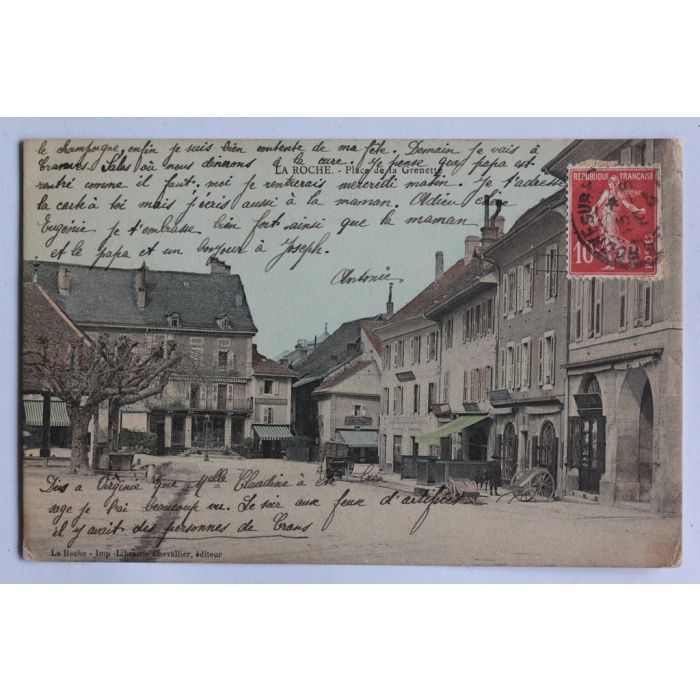 le champagne, enfin je suis bien contente de ma fête. Demain je vais à
Cranves. Sales où nous dinerons à la cure. Je pense que papa est
LA ROCHE. - Place de la Grenette
rentré comme il faut, moi je rentrerais mercredi matin. Je t'adresse
la carte à toi mais j'écris aussi à la maman. Adieu chère
Eugénie je t'embrasse bien fort ainsi que la maman
et le papa et un bonjour à Joseph.
Antonie
REPUBLIQUE FRANÇAISE
10
POSTES
Dis a Virginie que Melle Claudine à été bien
sage je l'ai beaucoup vu. Le soir aux feux d'artifices
il y avait des personnes de Crans
La Roche - Imp.-Librairie Chevallier, éditeur